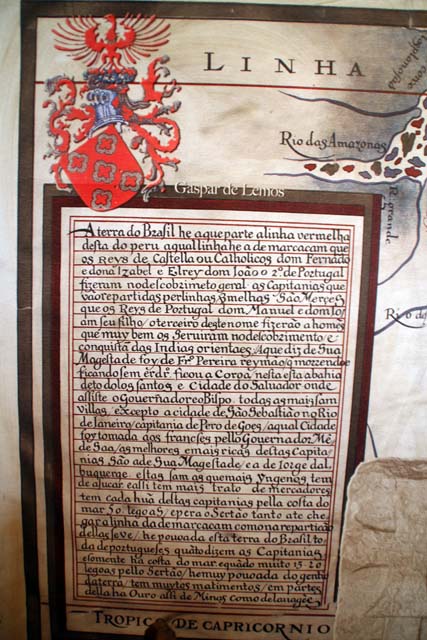 LINHA
Rio das Amazonas
R. grande
Rio d
Gaspar de Lemos
A terra do Brasil he aqueparte alinha vermelha
desta do peru aqual linha he a de marcacam que
os REYS de Castella ou Catholicos dom Fernado
e dona Izabel e Elrey dom João o 2º de Portugal
fizeram no descobzimeto geral as Capitanias que
vão repartidas per linhas são Merces
que os Reys de Portugal dom Manuel e dom
am seu filho, o terceiro deste nome fizerão a homes
que muy bem os Seruiram no descobzimento e
conquista das Indias orientaes Aque diz de Sua
Magestade foy de Frco Pereira
ficando sem ficou a Coroa nesta está abahia
de todolos santos e Cidade do Saluador onde
assiste o Gouernador e o Bispo todas as mais sam
villas, excepto a cidade de São Sebastião no Rio
de Janeiro, capitania de Pero de Goes, aqual Cidade
foy tomada aos franceses pello Gouernador Mē
de Saa, as melhores emais ricas destas Capita
nias são a de Sua Magestade, e a de Jorge dal
buquerque estas sam as que mais Yngenos, tem
de açucar e assi tem mais trato de mercadores
tem cada huã destas capitanias pella costa do
mar 50 legoas, e pera o Sertão tanto ate che
gar a linha da de marcacam como na reparticão
dellas se ve, he pouoada esta terra do Brasil to
da de portugueses quāto dizem as Capitanias
esomente ha costa do mar equādo muito 15 20
legoas pello Sertão, he muy pouoada do gentio
da terra, tem muytos matimentos, em partes
della ha Ouro assi de Minas como de lanagēs
TROPICO DE CAPRICORNIO